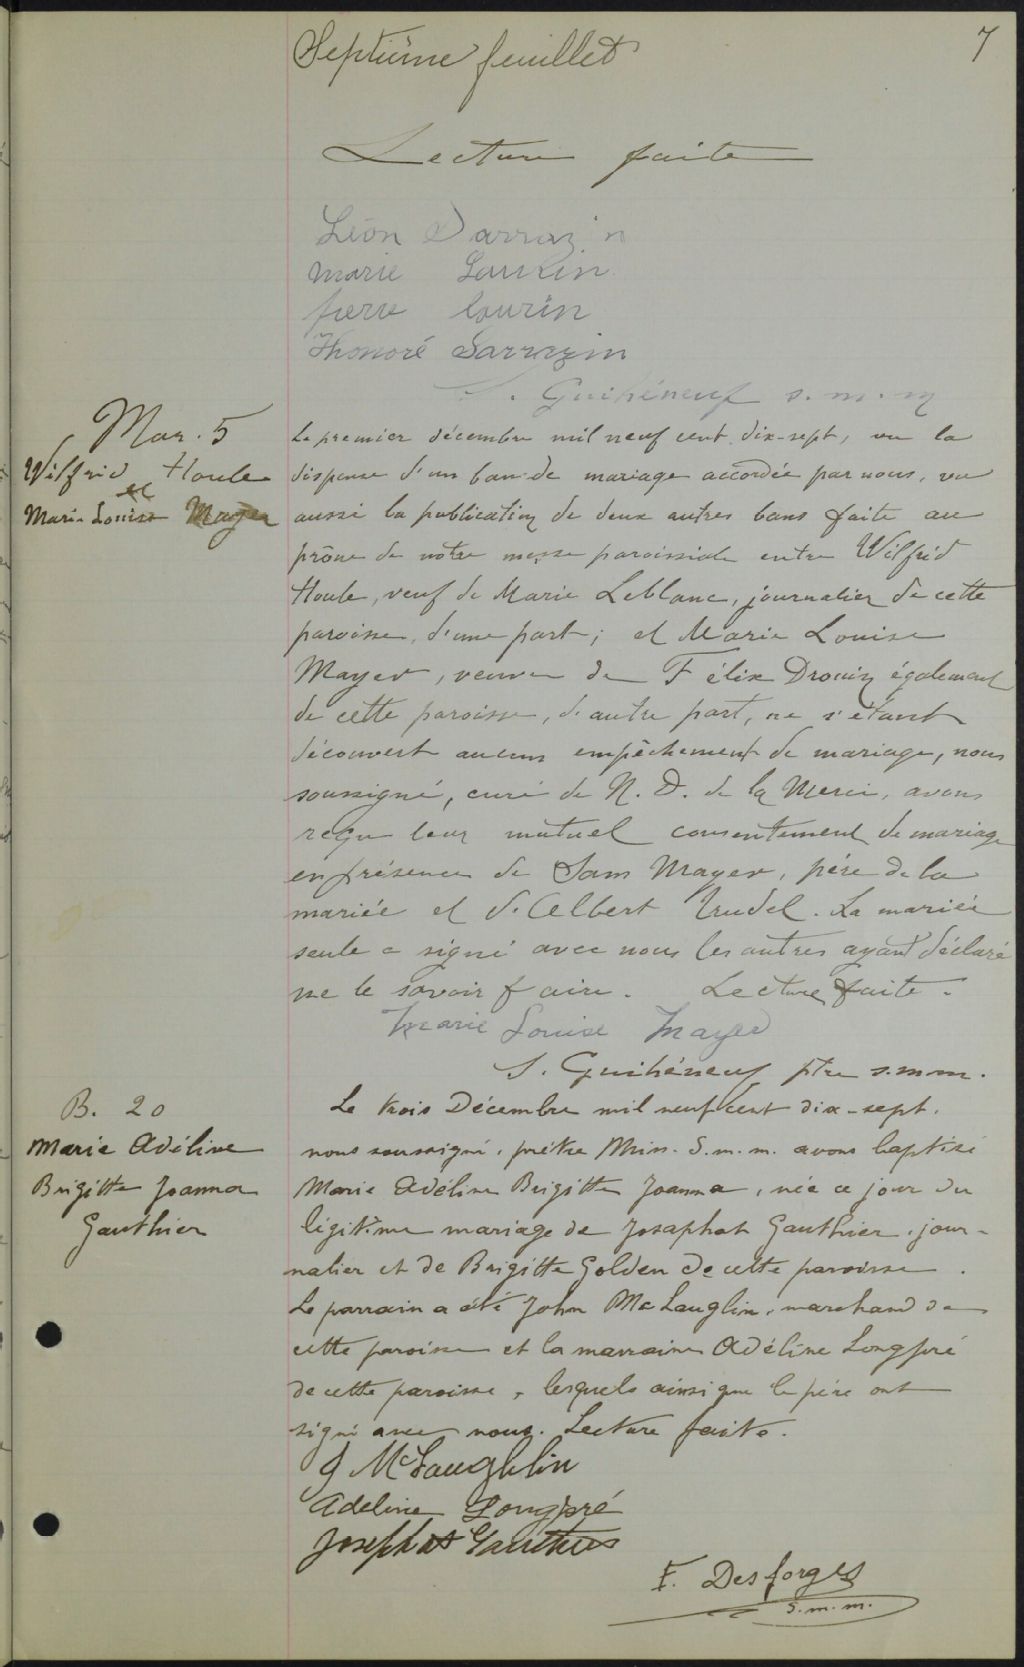 7
Septième feuillet
Lecture faite
Léon Sarrazin
Marie Laurin
Pierre Laurin
Honoré Sarrazin
S. Guihéneuf s.m.m
Mar. 5
Wilfrid Houle
et
Marie Louise Mayer
Le premier décembre mil neuf cent dix-sept, vu la
dispense d'un ban de mariage accordée par nous, vu
aussi la publication de deux autres bans faite au
prône de notre messe paroissiale entre Wilfrid
Houle, veuf de Marie Leblanc, journalier de cette
paroisse, d'une part; et Marie Louise
Mayer, veuve de Félix Drouin également
de cette paroisse, d'autre part, ne s'étant
découvert aucun empêchement de mariage, nous
soussigné, curé de N. D. de la Merci, avons
reçu leur mutuel consentement de mariage
en présence de Sam Mayer, père de la
mariée et d'Albert Trudel. La mariée
seule a signé avec nous les autres ayant déclaré
ne le savoir faire. Lecture faite.
Marie Louise Mayer
S. Guihéneuf ptre s.m.m.
B. 20
Marie Adéline
Brigitte Joanna
Gauthier
Le trois Décembre mil neuf cent dix-sept.
nous soussigné, prêtre Miss. S.m.m. avons baptisé
Marie Adéline Brigitte Joanna, née ce jour du
légitime mariage de Josaphat Gauthier, jour-
nalier et de Brigitte Golden de cette paroisse.
Le parrain a été John McLauglin, marchand de
cette paroisse et la marraine Adéline Longpré
de cette paroisse, lesquels ainsi que le père ont
signé avec nous. Lecture faite.
J McLaughlin
Adeline Longpré
Josephat Gauthier
F. Desforges
s.m.m.